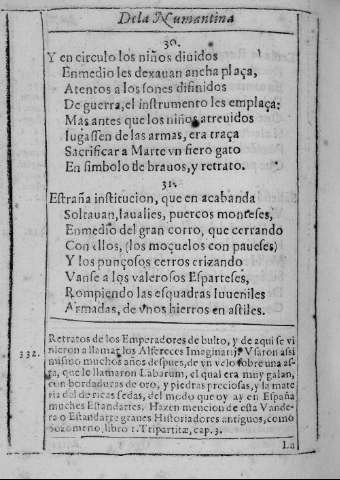 Dela Numantina
30.
Y en circulo los niños diuidos
Enmedio les dexauan ancha plaça,
Atentos a los sones difinidos
De guerra, el instrumento les emplaça:
Mas antes que los niños atreuidos
Iugassen de las armas, era traça
Sacrificar a Marte vn fiero gato
En simbolo de brauos, y retrato.
31.
Estraña institucion, que en acabanda
Soltauan, iaualies, puercos monteses,
Enmedio del gran corro, que cerrando
Con ellos, (los moçuelos con paueses)
Y los punçosos cerros erizando
Vanse a los valerosos Esparteses,
Rompiendo las esquadras Iuueniles
Armadas, de vnos hierros en astiles.
Retratos de los Emperadores de bulto, y de aqui se vi
332. nieron a llamar los Alfereces Imaginarij. Vsaron assi
mismo muchos años despues, de vn velo sobre una as-
ta, que le llamaron Labarum, el qual era muy galan,
con bordaduras de oro, y piedras preciosas, y la mate
ria del de ricas sedas, del modo que oy ay en España
muches Estandartes. Hazen mencion de esta Vande-
ra o Estandarte granes Historiadores antiguos, como
Sozomeno, libro 1. Tripartitæ, cap. 3.
La